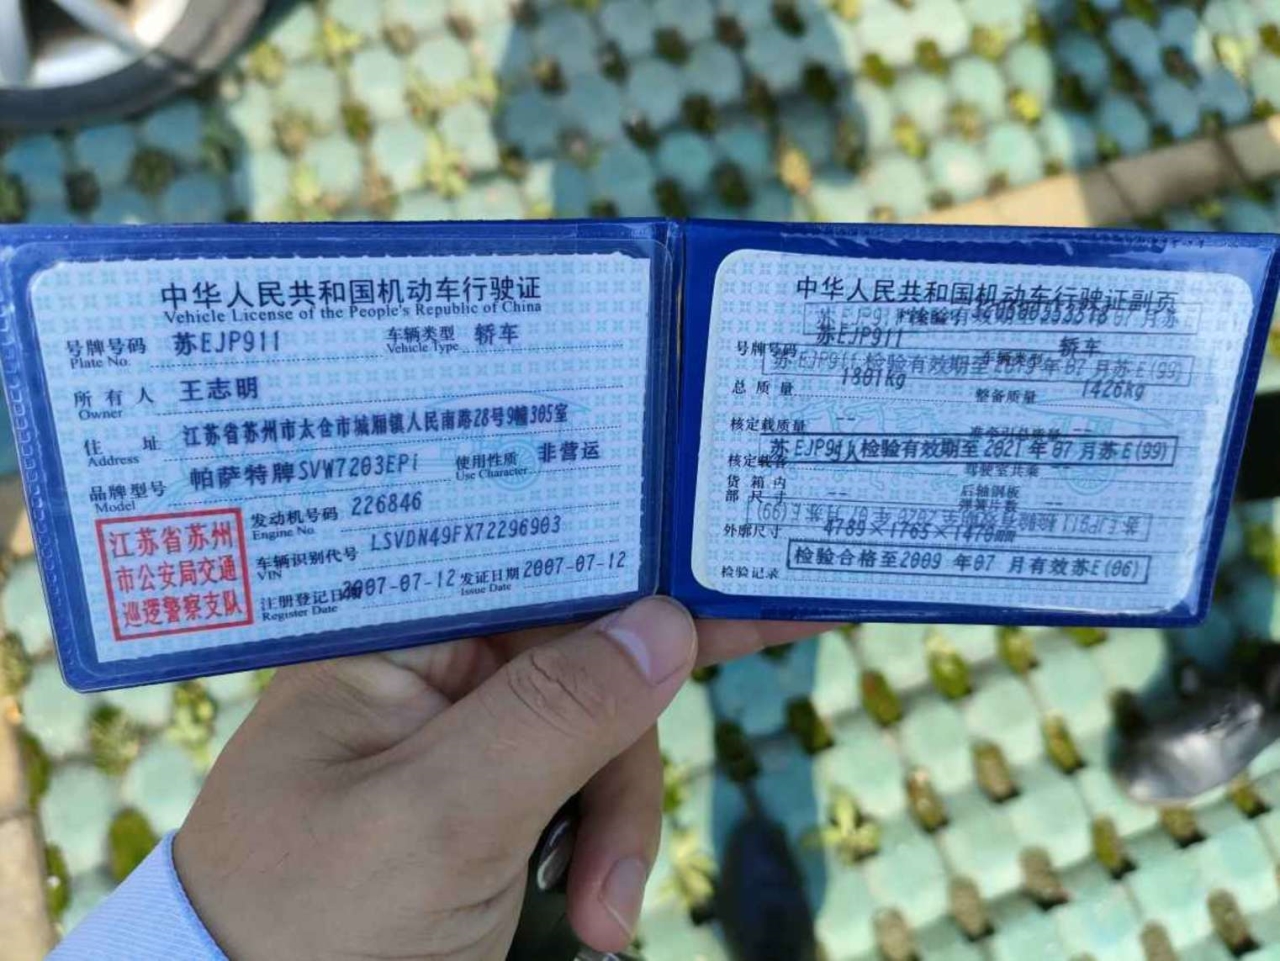 中华人民共和国机动车行驶证
Vehicle License of the People's Republic of China
号牌号码 苏EJP911 车辆类型 轿车
Plate No. Vehicle Type
所有人 王志明
Owner
住址 江苏省苏州市太仓市城厢镇人民南路28号9幢305室
Address
品牌型号 帕萨特牌SVW7203EPi 使用性质 非营运
Model Use Character
江苏省苏州
市公安局交通
巡逻警察支队
发动机号码 226846
Engine No.
车辆识别代号 LSVDN49FX72296903
VIN
注册登记日期 2007-07-12 发证日期 2007-07-12
Register Date Issue Date
中华人民共和国机动车行驶证副页
苏EJP911 轿车
号牌号码 车辆类型
苏EJP911 检验有效期至2019年07月苏E(99)
总质量 1801Kg 整备质量 1426Kg
核定载质量 --
苏EJP911 检验有效期至2021年07月苏E(99)
核定载客
货箱内
部尺寸 -- 后轴钢板
弹簧片数 --
外廓尺寸 4789×1765×1470mm
检验记录 检验合格至2009年07月有效苏E(06)